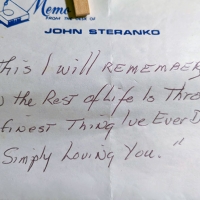 Memo
FROM THE DESK OF
JOHN STERANKO
This I will REMEMBER
the Rest of Life Is Thro
finest Thing I've Ever D
Simply Loving You."